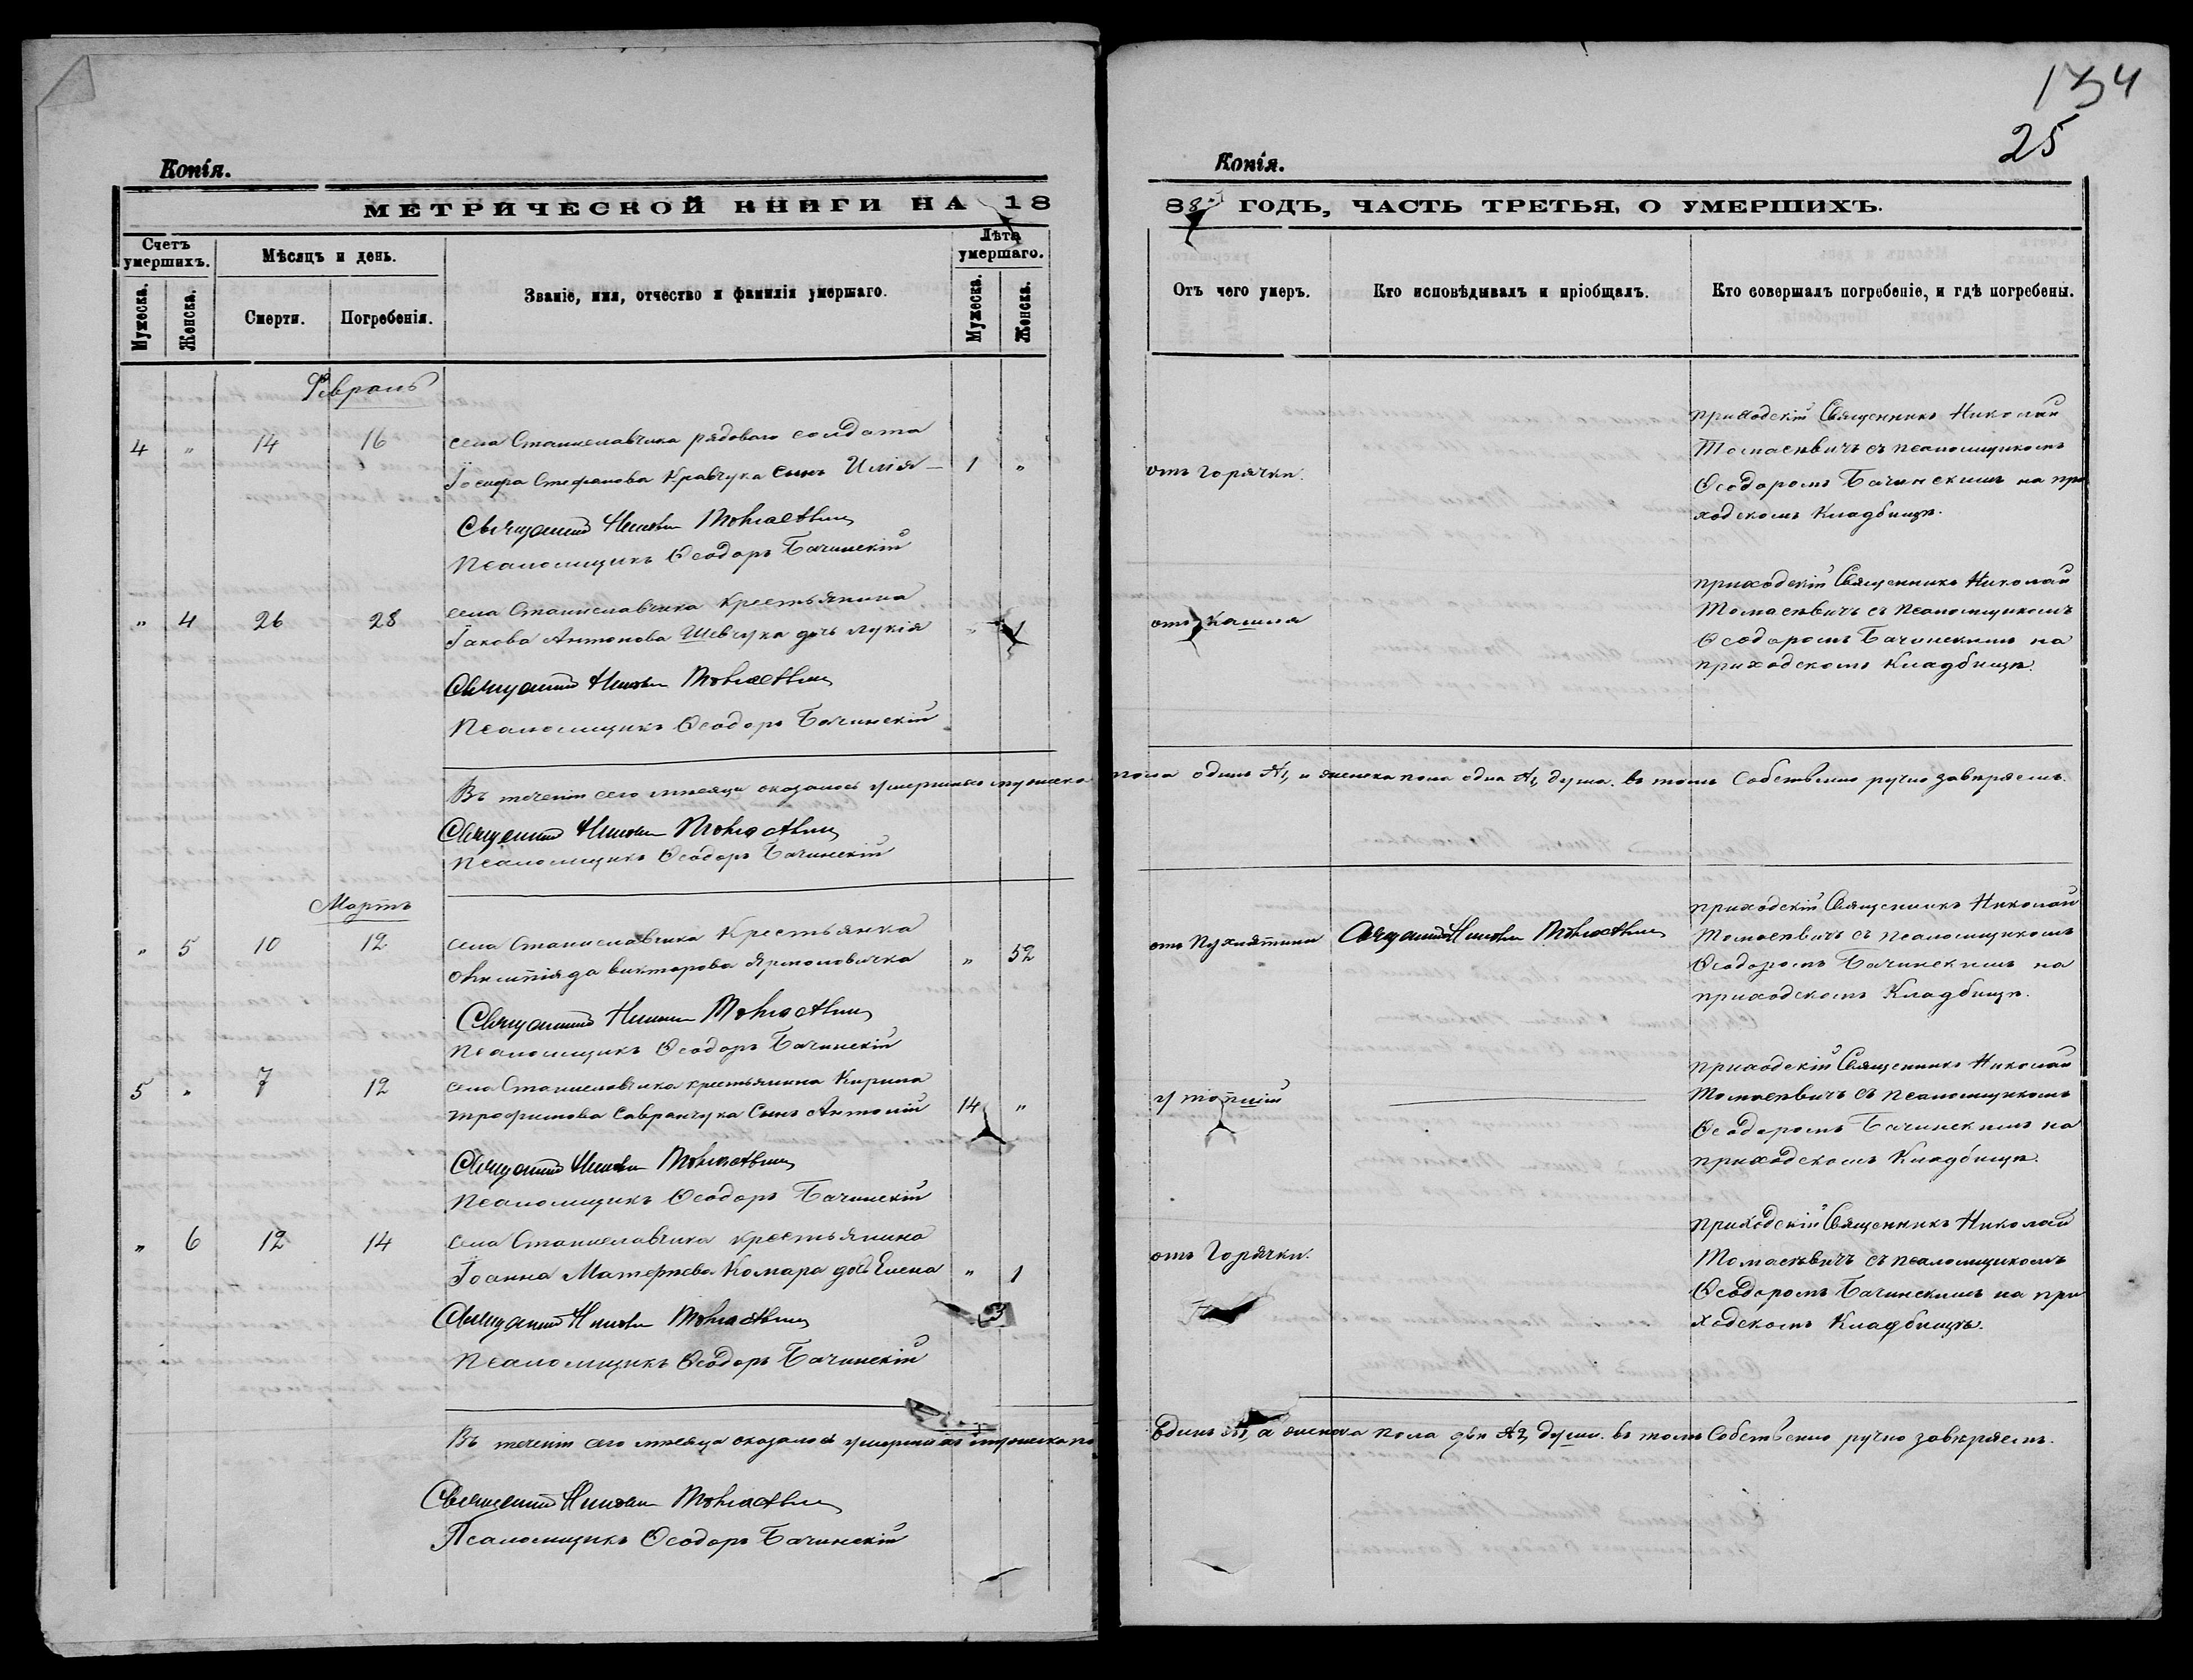 Копія.
МЕТРИЧЕСКОЙ КНИГИ НА 18
Счетъ умершихъ.
Мужеска.
Женска.
Мѣсяцъ и день.
Смерти.
Погребенія.
Званіе, имя, отчество и фамилія умершаго.
Лѣта умершаго.
Мужеска.
Женска.
Февраль
4 " 14 16 села Станиславчика рядоваго солдата
Іосифа Стефанова Кравчука сынъ Илія — 1 "
Священникъ Николай Томасевичъ
Псаломщикъ Ѳеодоръ Бачинскій
" 4 26 28 села Станиславчика крестьянина
Іакова Антонова Шевчука дочь Лукія " 1
Священникъ Николай Томасевичъ
Псаломщикъ Ѳеодоръ Бачинскій
Въ теченіи сего мѣсяца оказалось умершихъ мужеска
Священникъ Николай Томасевичъ
Псаломщикъ Ѳеодоръ Бачинскій
Мартъ
" 5 10 12 села Станиславчика крестьянка
викторова Ярмоловичка " 52
Священникъ Николай Томасевичъ
Псаломщикъ Ѳеодоръ Бачинскій
5 " 7 12 села Станиславчика крестьянина Кирила
трофимова Савранчука сынъ Антоній 14 "
Священникъ Николай Томасевичъ
Псаломщикъ Ѳеодоръ Бачинскій
" 6 12 14 села Станиславчика крестьянина
Іоанна Матфеева Комара дочь Елена " 1
Священникъ Николай Томасевичъ
Псаломщикъ Ѳеодоръ Бачинскій
Въ теченіи сего мѣсяца оказалось умершихъ мужеска по
Священникъ Николай Томасевичъ
Псаломщикъ Ѳеодоръ Бачинскій
134
25
Копія.
88 ГОДЪ, ЧАСТЬ ТРЕТЬЯ, О УМЕРШИХЪ.
Отъ чего умеръ.
Кто исповѣдывалъ и пріобщалъ.
Кто совершалъ погребеніе, и гдѣ погребены.
отъ горячки.
приходскій Священникъ Николай
Томасевичъ съ псаломщикомъ
Ѳеодоромъ Бачинскимъ на при
ходскомъ кладбищѣ.
отъ кашля
приходскій Священникъ Николай
Томасевичъ съ псаломщикомъ
Ѳеодоромъ Бачинскимъ на
приходскомъ кладбищѣ.
пола одинъ №1, и женска пола одна №1, душа. въ томъ собственно ручно завѣряемъ.
отъ пухлятины
Священникъ Николай Томасевичъ
приходскій Священникъ Николай
Томасевичъ съ псаломщикомъ
Ѳеодоромъ Бачинскимъ на
приходскомъ кладбищѣ.
утопшій
приходскій Священникъ Николай
Томасевичъ съ псаломщикомъ
Ѳеодоромъ Бачинскимъ на
приходскомъ кладбищѣ.
отъ горячки.
приходскій Священникъ Николай
Томасевичъ съ псаломщикомъ
Ѳеодоромъ Бачинскимъ на при
ходскомъ кладбищѣ.
Единъ №1, а женска пола двѣ №2, души. въ томъ собственно ручно завѣряемъ.